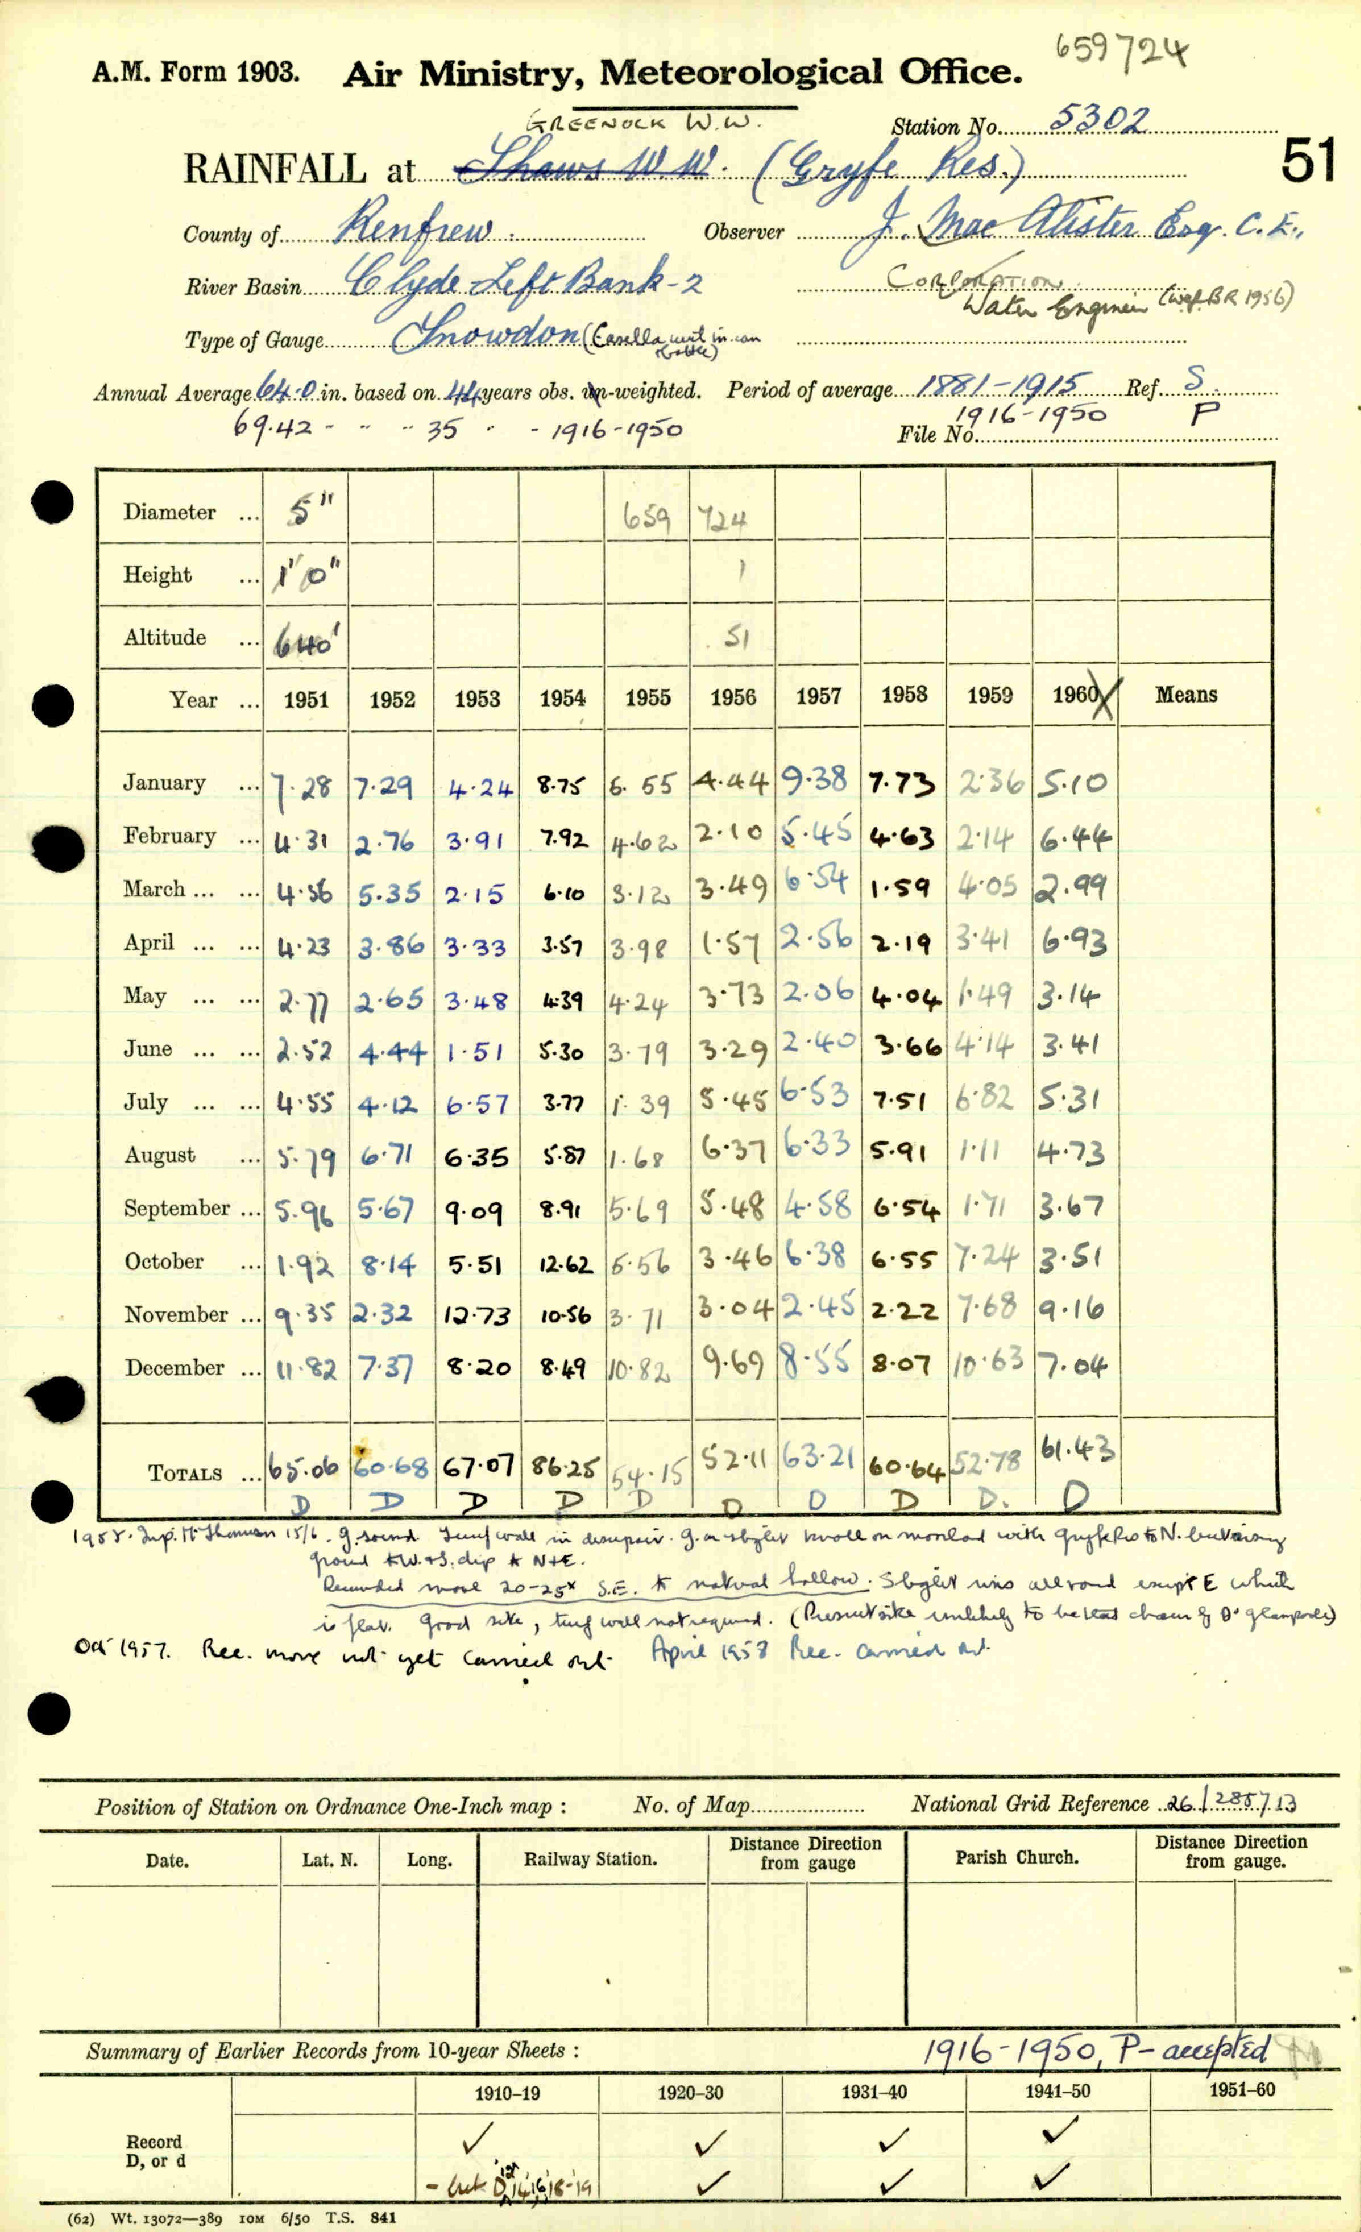 659724
A.M. Form 1903. Air Ministry, Meteorological Office.
GREENOCK W.W.
Station No. 5302
51
RAINFALL at Shaws W.W. (Gryfe Res.)
County of Renfrew. Observer J. Mac Alister Esq. C.E.,
River Basin Clyde Left Bank-2 CORPORATION
Water Engineer (wef BR 1956)
Type of Gauge Snowdon (Casella unit in can bottle)
Annual Average 64.0 in. based on 44 years obs. un-weighted. Period of average 1881-1915 Ref. S.
69.42 - - - 35 - - 1916-1950 1916-1950 P
File No.
Diameter ... 5" 659 724
Height ... 1' 0" 1
Altitude ... 640' 51
Year ... 1951 1952 1953 1954 1955 1956 1957 1958 1959 1960 X Means
January ... 7.28 7.29 4.24 8.75 6.55 4.44 9.38 7.73 2.36 5.10
February ... 4.31 2.76 3.91 7.92 4.62 2.10 5.45 4.63 2.14 6.44
March ... ... 4.56 5.35 2.15 6.10 3.12 3.49 6.54 1.59 4.05 2.99
April ... ... 4.23 3.86 3.33 3.57 3.98 1.57 2.56 2.19 3.41 6.93
May ... ... 2.77 2.65 3.48 4.39 4.24 3.73 2.06 4.04 1.49 3.14
June ... ... 2.52 4.44 1.51 5.30 3.79 3.29 2.40 3.66 4.14 3.41
July ... ... 4.55 4.12 6.57 3.77 1.39 5.45 6.53 7.51 6.82 5.31
August ... 5.79 6.71 6.35 5.87 1.68 6.37 6.33 5.91 1.11 4.73
September ... 5.96 5.67 9.09 8.91 5.69 5.48 4.58 6.54 1.71 3.67
October ... 1.92 8.14 5.51 12.62 5.56 3.46 6.38 6.55 7.24 3.51
November ... 9.35 2.32 12.73 10.56 3.71 3.04 2.45 2.22 7.68 9.16
December ... 11.82 7.37 8.20 8.49 10.82 9.69 8.55 8.07 10.63 7.04
TOTALS ... 65.06 60.68 67.07 86.25 54.15 52.11 63.21 60.64 52.78 61.43
D D D D D D D D D. D
1955. Insp. 15/6. g. sound Turf wall in disrepair. G. on slight knoll on moorland with Gryfe Res to N. but rising
ground to W. & S. dip to N & E.
Recommended move 20-25x S.E. to natural hollow. Slight rise all round except E which
is flat. Good site, turf wall not required. (Present site unlikely to be
Oct 1957. Rec. move not yet carried out. April 1958 Rec. carried out.
Position of Station on Ordnance One-Inch map : No. of Map National Grid Reference 26/285713
Date. Lat. N. Long. Railway Station. Distance Direction from gauge Parish Church. Distance Direction from gauge.
Summary of Earlier Records from 10-year Sheets : 1916-1950, P- accepted
1910–19 1920–30 1931–40 1941–50 1951–60
Record ✓ ✓ ✓ ✓
D, or d ✓ ✓ ✓
(62) Wt. 13072—389 10M 6/50 T.S. 841